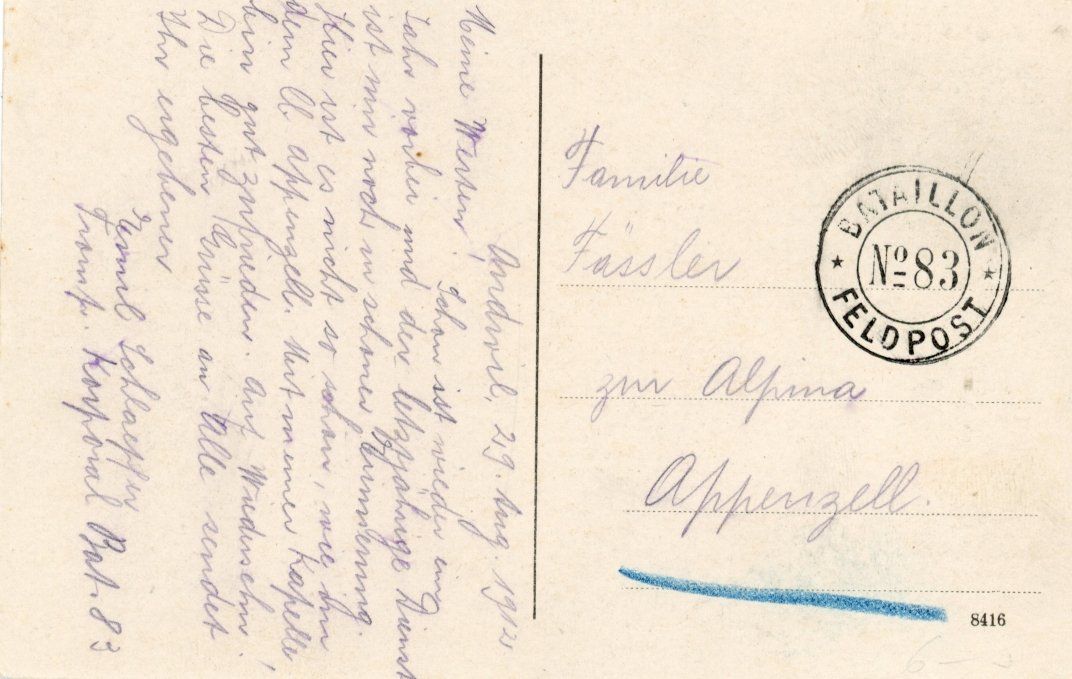 Andwil, 29. Aug. 1912
Meine Werten! Schon ist wieder ein
Jahr vorbei und der letzjährige Dienst
ist mir noch in schöner Erinnerung.
Hier ist es nicht so schön, wie in
dem lb. Appenzell. Mit meiner Kapelle
bin gut zufrieden. Auf Wiedersehn!
Die besten Grüsse an Alle sendet
Ihr ergebener
Schlaepfer
Tromp. Korporal Bat. 83
Familie
Fässler
zur Alpina
Appenzell.
BATAILLON
No 83
FELDPOST
8416